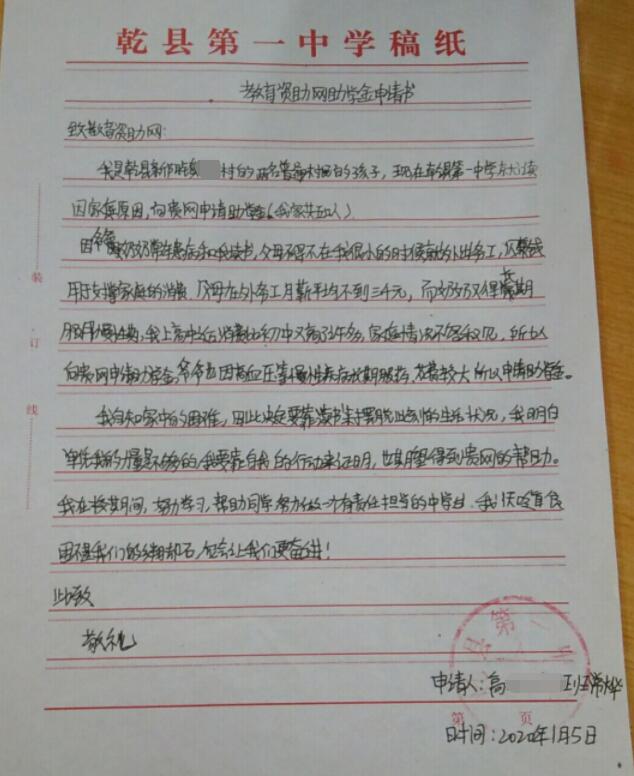 乾县第一中学稿纸
教育资助网助学金申请书
致教育资助网:
我是乾县 村的一名普通村里的孩子,现在乾县第一中学 读
因家庭原因,向贵网申请助学金(我家共五人)
因爷爷奶奶常年患病和我读书,父母不得不在我很小的时候就外出务工,以
用于支撑家庭的消费。父母在外务工月薪平均不到三千元,而奶奶又得长期
服用 ,我上高中后消费比初中又高了许多,家庭情况不容 ,所以
向贵网申请助学金,爷爷也因高血压等慢性疾病长期服药,花费较大所以申请助学金。
我自知家中的困难,因此决定要靠读书来摆脱此 的生活状况,我明白
单凭我的力量是不够的,我要靠自我的行动来证明,也期望得到贵网的帮助。
我在校其间,努力学习,帮助同学努力做一个有责任担当的中学生,我 贫
困不是我们的绊脚石,它会让我们更奋进!
此致
敬礼
申请人:高 班
时间:2020年1月5日
装
订
线
第 页